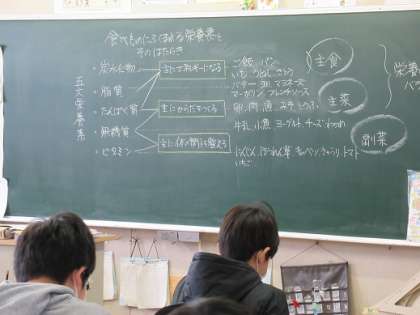 食べものにふくまれる栄養素と
そのはたらき
五大栄養素
・炭水化物
・脂質
・たんぱく質
・無機質
・ビタミン
主にエネルギーになる
主にからだをつくる
主に体の調子を整える
ごはん、パン
いも、うどん、さとう
バター、油、マヨネーズ
マーガリン、フレンチソース
卵、肉、魚、みそ、とうふ
牛乳、小魚、ヨーグルト、チーズ、わかめ
にんじん、ほうれん草、キャベツ、きゅうり、トマト
いちご
主食
主菜
副菜
栄養
バ